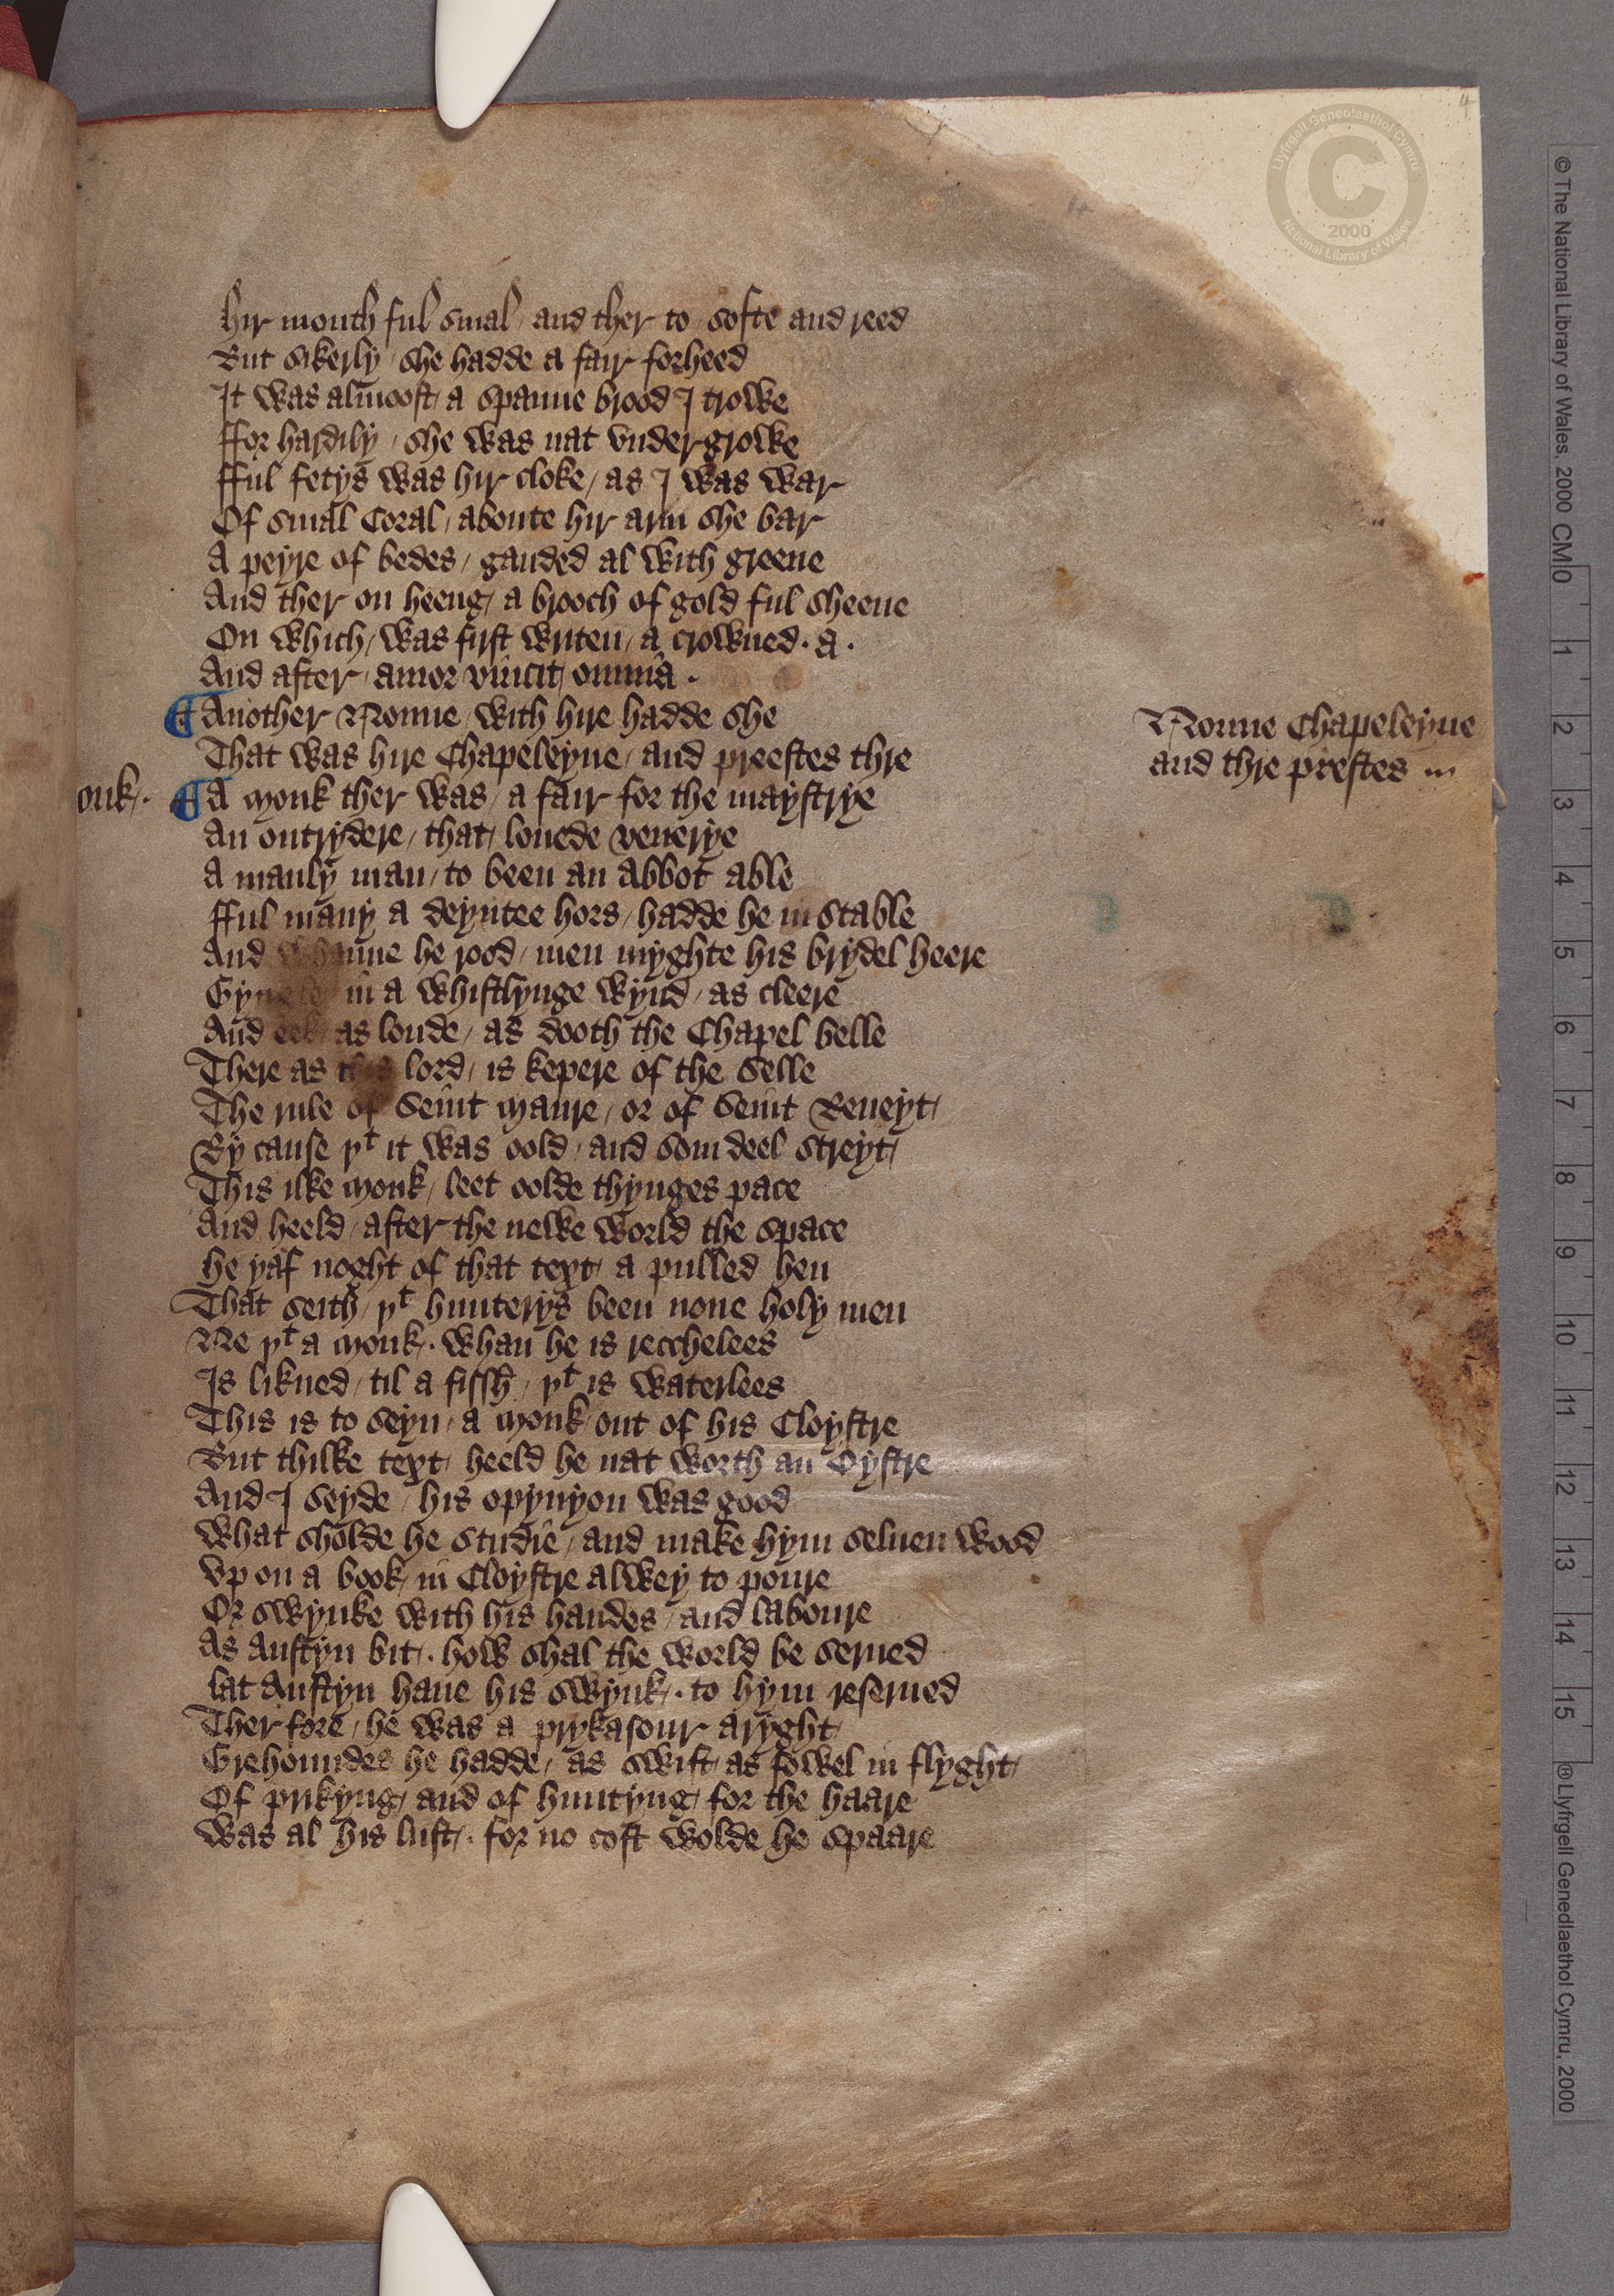 4
hir mouth ful smal / and ther to / softe and reed
But sikerly / she hadde a fair forheed
It was almoost a spanne brood I trowe
ffor hardily / she was nat vndergrowe
fful fetys was hir cloke / as I was war
Of smal Coral / aboute hir arm she bar
A peyre of bedes / gauded al with greene
And ther on heeng / a brooch of gold ful sheene
On which / was first writen / a crowned · A ·
And after / amor vincit omnia ·
¶ Another Nonne / with hire hadde she
That was hire Chapeleyne / and preestes thre
Nonne Chapeleyne
and thre prestes ···
onk ·
¶ A Monk ther was / a fair for the maystrye
An outrydere / that louede venerye
A manly man / to been an Abbot able
fful many a deyntee hors / hadde he in stable
And whanne he rood / men myghte his brydel heere
Gyngle in a whistlynge wynd / as cleere
And eek as loude / as dooth the Chapel belle
There as this lord / is kepere of the selle
The rule of Seint Maure / or of Seint Beneyt
By cause þᵗ it was oold / and som deel streyt
This ilke Monk / leet oolde thynges pace
And heeld / after the newe world the space
He yaf noght of that text a pulled hen
That seith / þᵗ hunterys been none holy men
Ne þᵗ a Monk · whan he is recchelees
Is likned / til a fissh / þᵗ is waterlees
This is to seyn / a Monk out of his Cloystre
But thilke text heeld he nat worth an Oystre
And I seyde / his opynyon was good
What sholde he studie / and make hym seluen wood
Vp on a book / in Cloystre alwey to poure
Or swynke with his handes / and laboure
As Austyn bit · how shal the world be serued
lat Austyn haue his swynk · to hym reserued
Ther fore / he was a prykasour aryght
Grehoundes he hadde / as swift as fowel in flyght
Of prikyng / and of huntyng / for the haare
Was al his lust · for no cost wolde he spaare
Llyfrgell Genedlaethol Cymru
C
2000
National Library of Wales
© The National Library of Wales, 2000
CM 0 1 2 3 4 5 6 7 8 9 10 11 12 13 14 15
® Llyfrgell Genedlaethol Cymru, 2000